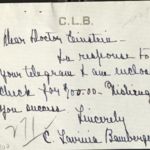 C.L.B.
Dear Doctor Einstein
In response to
your telegram I am enclosing
check for $00.00 Wishing
you success
Sincerely
C. Lavinia Bamberger